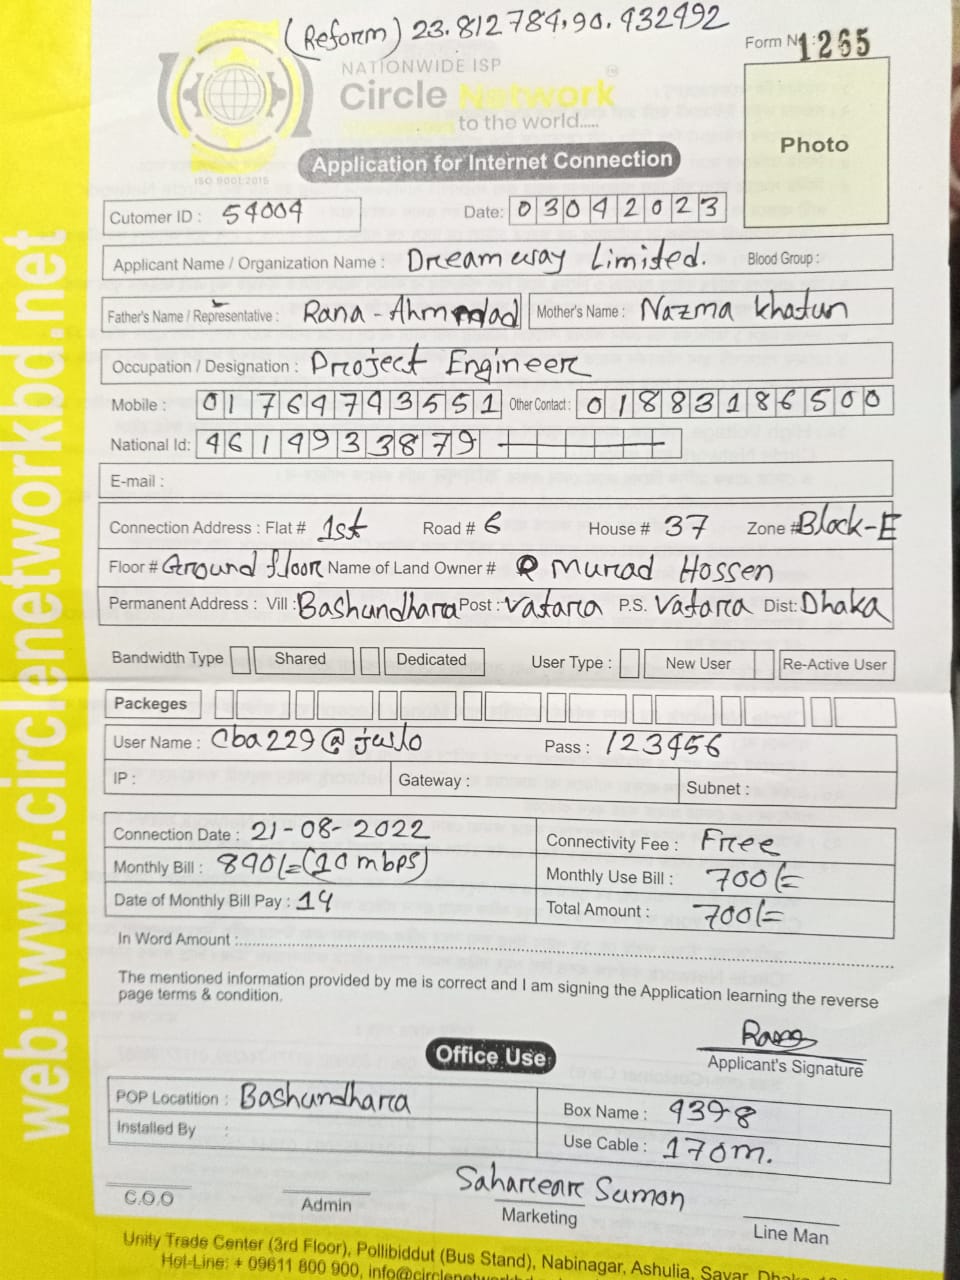 (Reform) 23.812784,90.932492
Form No: 1265
NATIONWIDE ISP
Circle Network
to the world.....
ISO 9001:2015
Application for Internet Connection
Photo
Cutomer ID : 54004 Date: 03042023
Applicant Name / Organization Name : Dreamway Limited. Blood Group :
Father's Name / Representative : Rana-Ahmmad Mother's Name : Nazma Khatun
Occupation / Designation : Project Engineer
Mobile : 01764743551 Other Contact : 01883186500
National Id: 4614933879
E-mail :
Connection Address : Flat # 1st Road # 6 House # 37 Zone # Block-E
Floor # Ground floor Name of Land Owner # Murad Hossen
Permanent Address : Vill : Bashundhara Post : Vatara P.S. Vatara Dist: Dhaka
Bandwidth Type Shared Dedicated User Type : New User Re-Active User
Packeges
User Name : Cba229@ Pass : 123456
IP : Gateway : Subnet :
Connection Date : 21-08-2022 Connectivity Fee : Free
Monthly Bill : 890/=(10 mbps) Monthly Use Bill : 700/=
Date of Monthly Bill Pay : 14 Total Amount : 700/=
In Word Amount :
The mentioned information provided by me is correct and I am signing the Application learning the reverse
page terms & condition.
Applicant's Signature
Office Use
POP Locatition : Bashundhara Box Name : 939-8
Installed By : Use Cable : 170m.
C.O.O Admin Sumon Marketing Line Man
Unity Trade Center (3rd Floor), Pollibiddut (Bus Stand), Nabinagar, Ashulia, Savar,
Hot-Line: + 09611 800 900,
web: www.circlenetworkbd.net